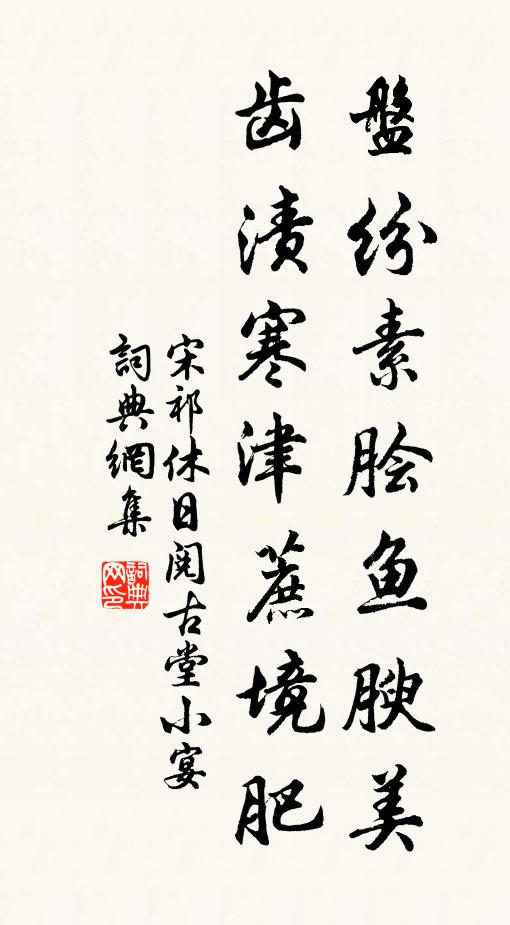 盤紛素脍鱼腴美
齿渍寒津蔗境肥
宋祁休日閱古堂小宴
詞典網集
詞典网印